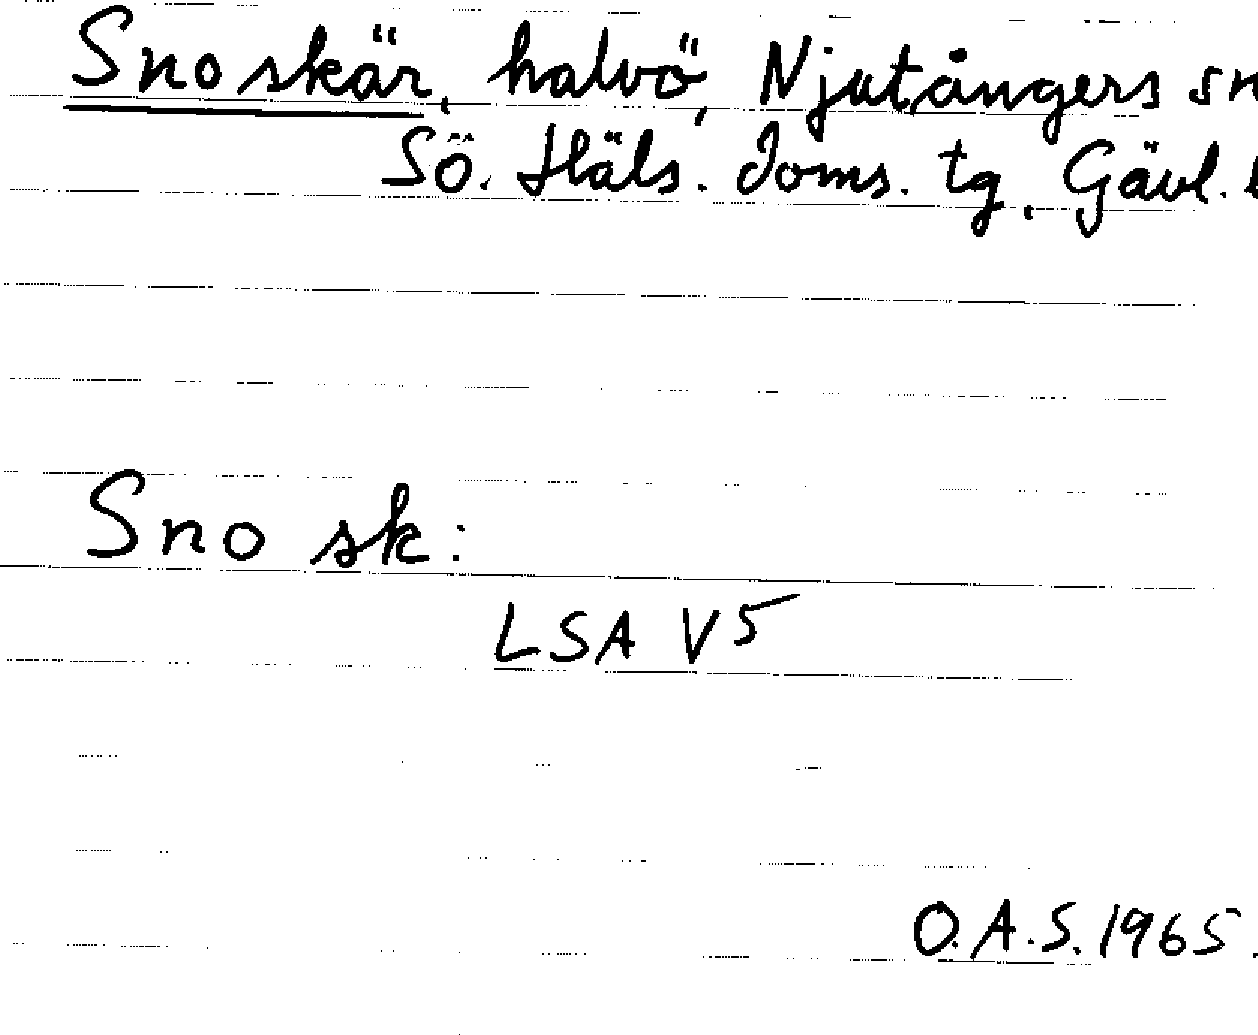 Snoskär, halvö, Njutångers sn
Sö. Häls. Doms. tg, Gävl.
Sno sk:
LSA V5
O.A.S. 1965.